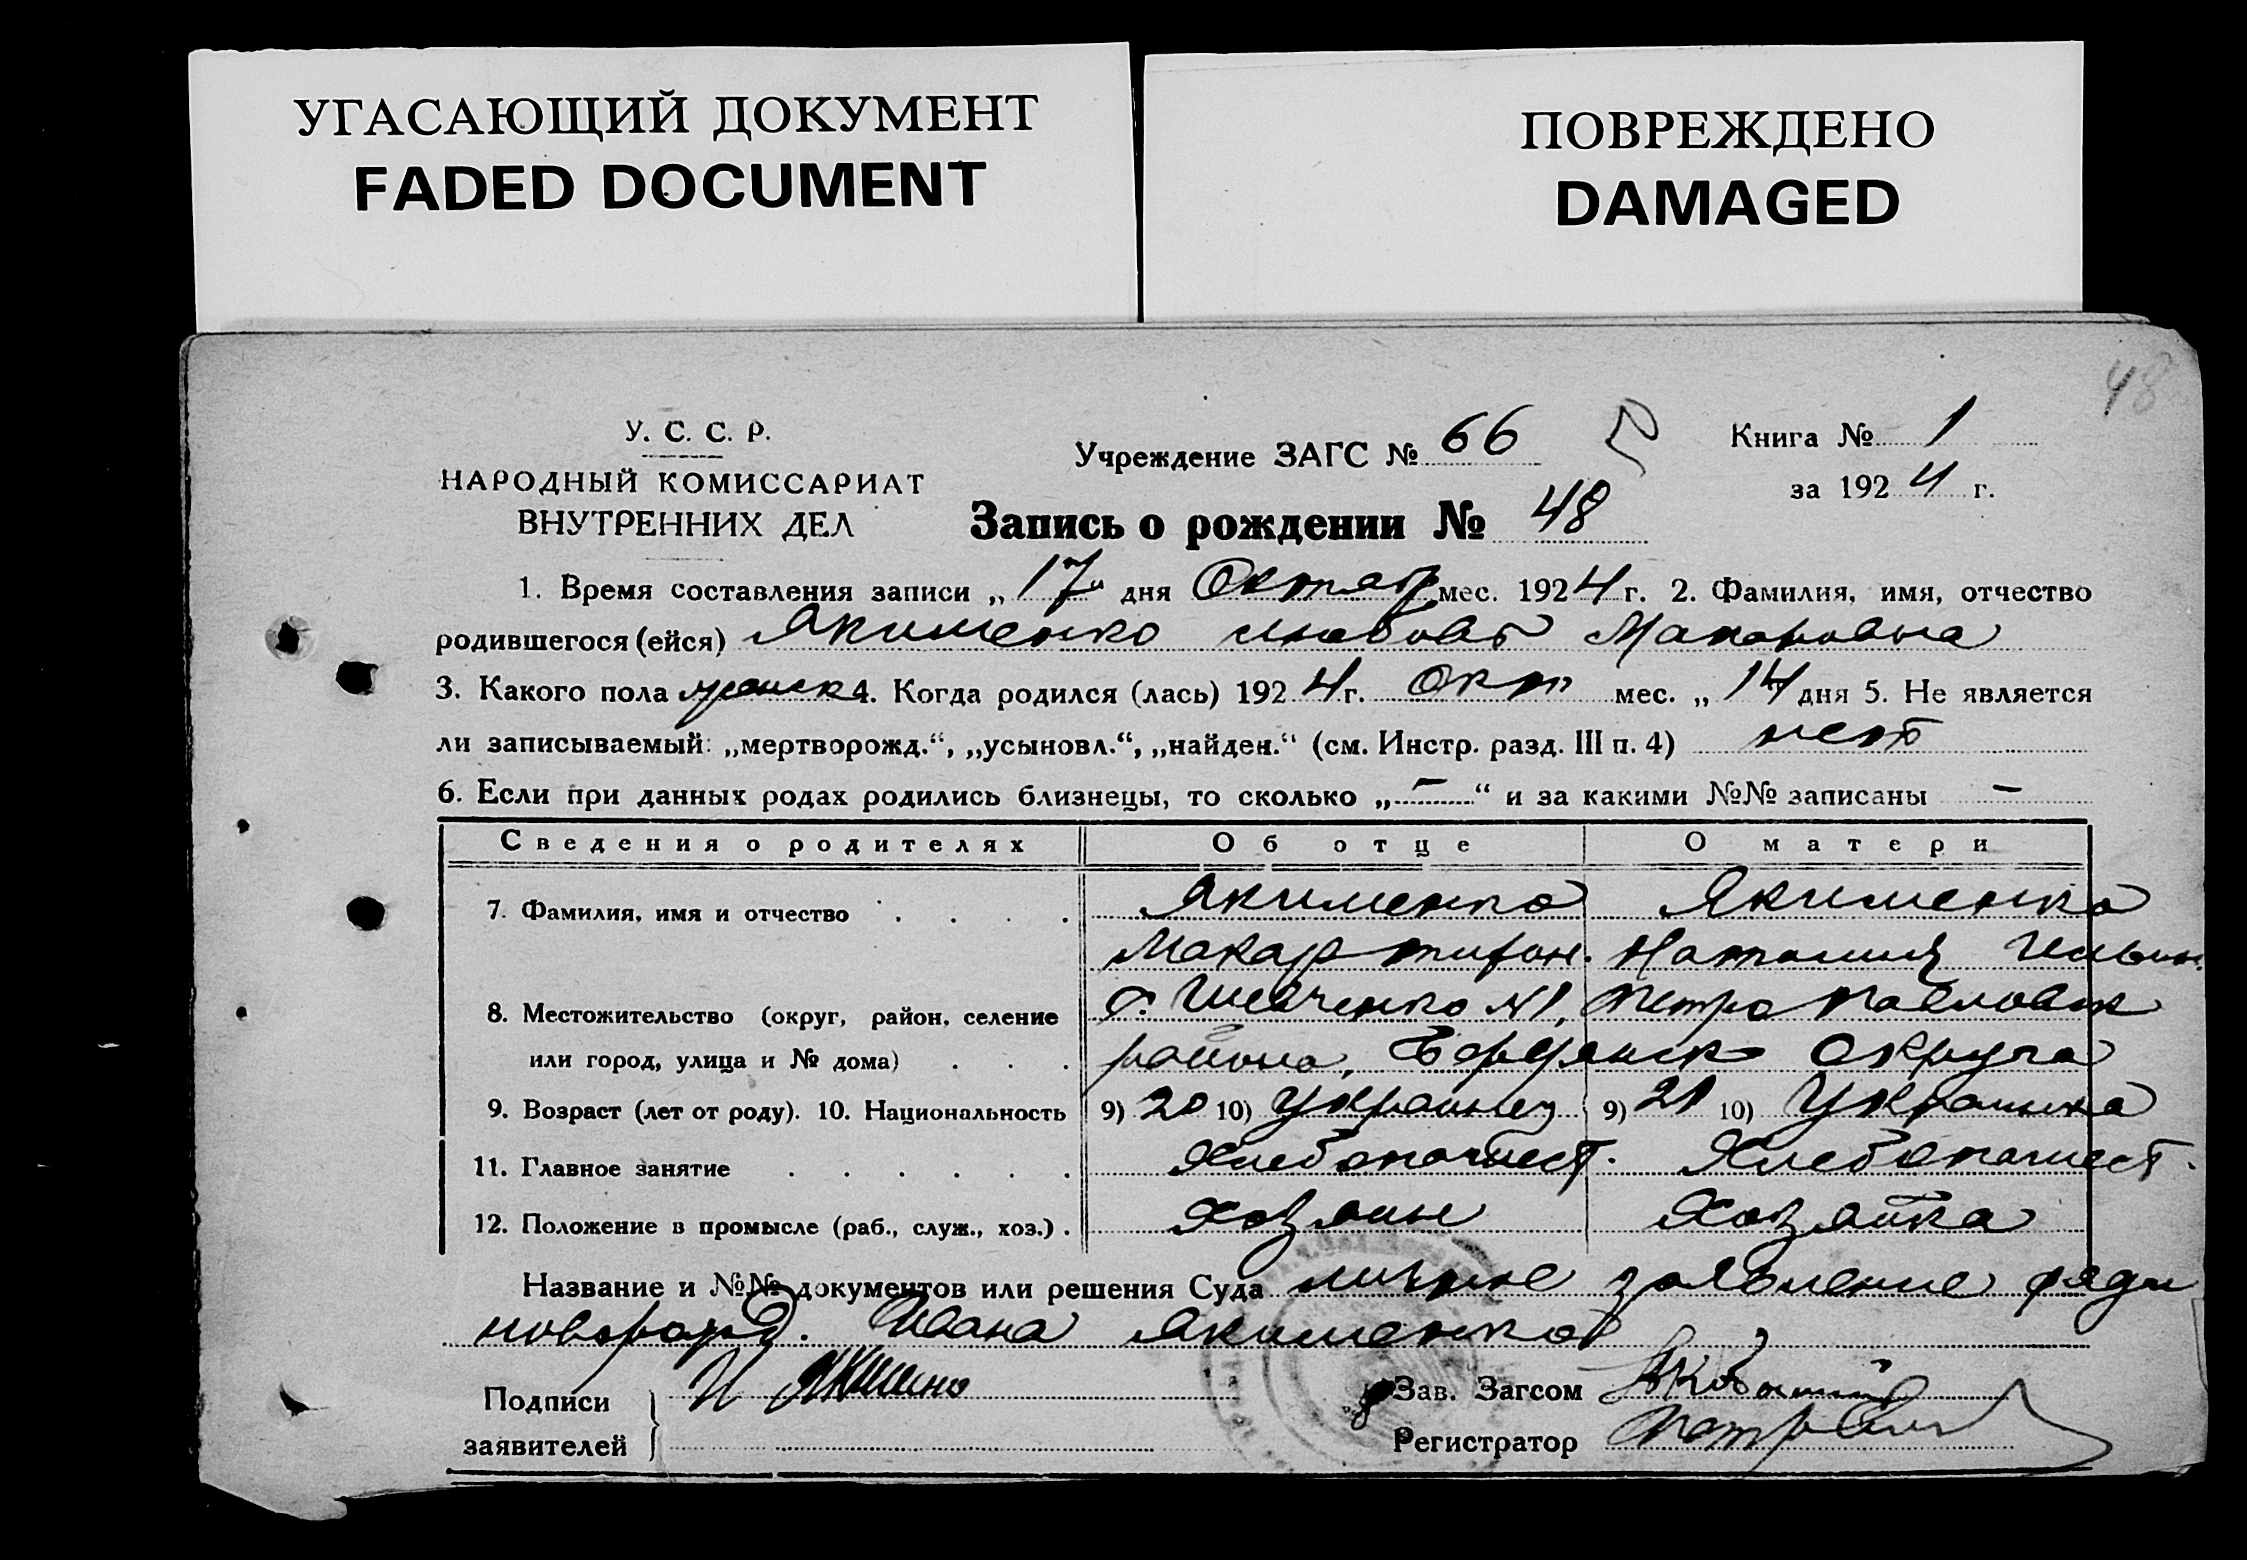 УГАСАЮЩИЙ ДОКУМЕНТ
FADED DOCUMENT
ПОВРЕЖДЕНО
DAMAGED
48
У. С. С. Р.
НАРОДНЫЙ КОМИССАРИАТ
ВНУТРЕННИХ ДЕЛ
Учреждение ЗАГС № 66
Книга № 1
за 1924 г.
Запись о рождении № 48
1. Время составления записи „17“ дня Октябр мес. 1924 г. 2. Фамилия, имя, отчество
родившегося (ейся) Якименко Любовь Макаровна
3. Какого пола женск 4. Когда родился (лась) 1924 г. Окт мес. „14 дня 5. Не является
ли записываемый: „мертворожд.“, „усыновл.“, „найден.“ (см. Инстр. разд. III п. 4) нет
6. Если при данных родах родились близнецы, то сколько „-“ и за какими №№ записаны -
Сведения о родителях Об отце О матери
7. Фамилия, имя и отчество Якименко Якименко
Макар Тифон. Наталия Ильин.
8. Местожительство (округ, район, селение с. Шевченко №1, Петропавловск
или город, улица и № дома) района, Бердянск округа
9. Возраст (лет от роду). 10. Национальность 9) 20 10) Украинец 9) 21 10) Украинка
11. Главное занятие Хлебопашест. Хлебопашест.
12. Положение в промысле (раб., служ., хоз.) Хозяин Хозяйка
Название и №№ документов или решения Суда личное заявление дяди
новорожд. Ивана Якименко
Подписи И Зав. Загсом
заявителей Регистратор